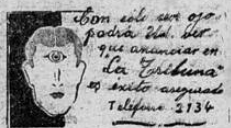 Con este solo ojo
podrá Ud. ver
que anunciar en
"La Tribuna"
es éxito asegurado
Teléfono 2134